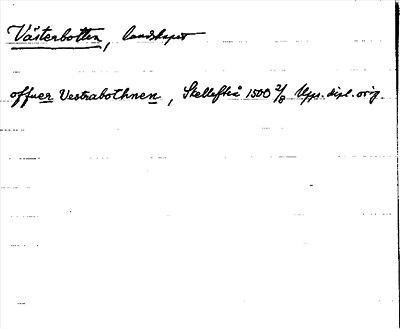 Västerbotten, landskapet
offuer Vestrabothnen, Skellefteå 1500 2/8 Upps. dipl. orig.